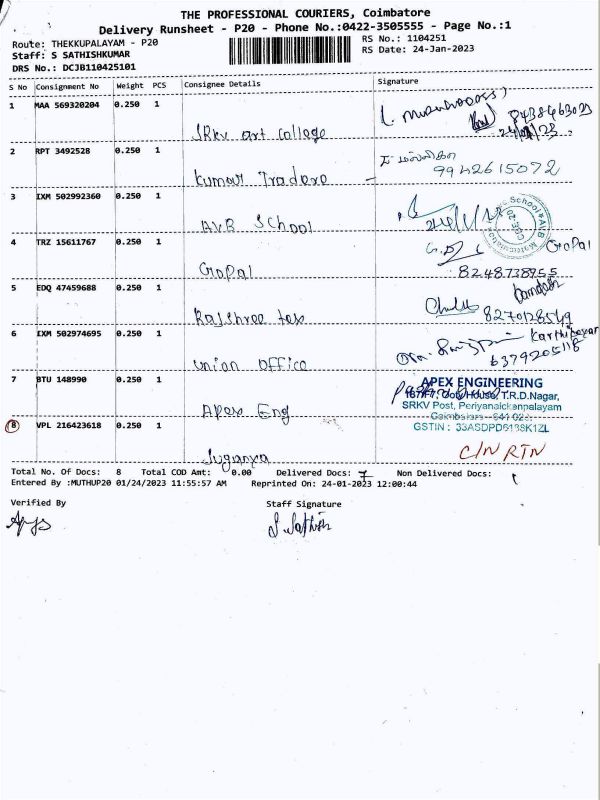 THE PROFESSIONAL COURIERS, Coimbatore
Delivery Runsheet - P20 - Phone No.:0422-3505555 - Page No.:1
Route: THEKKUPALAYAM - P20
RS No.: 1104251
Staff: S SATHISHKUMAR
RS Date: 24-Jan-2023
DRS No.: DCJB110425101
S No Consignment No Weight PCS Consignee Details Signature
1 MAA 569320204 0.250 1
SRKV art college
2 RPT 3492528 0.250 1
Kumar Tradere 9942615072
3 IXM 502992360 0.250 1
AVB School
4 TRZ 15611767 0.250 1
GoPal GoPal
8248738955
5 EDQ 47459688 0.250 1
Rajshree tex 8270128549
6 IXM 502974695 0.250 1
union office 6379205118
7 BTU 148990 0.250 1
Apex Eng
APEX ENGINEERING
T.R.D.Nagar,
SRKV Post, Periyanaickenpalayam
8 VPL 216423618 0.250 1
C/N RTN
Total No. Of Docs: 8 Total COD Amt: 0.00 Delivered Docs: 7 Non Delivered Docs: 1
Entered By :MUTHUP20 01/24/2023 11:55:57 AM Reprinted On: 24-01-2023 12:00:44
Verified By Staff Signature
S. Sathish